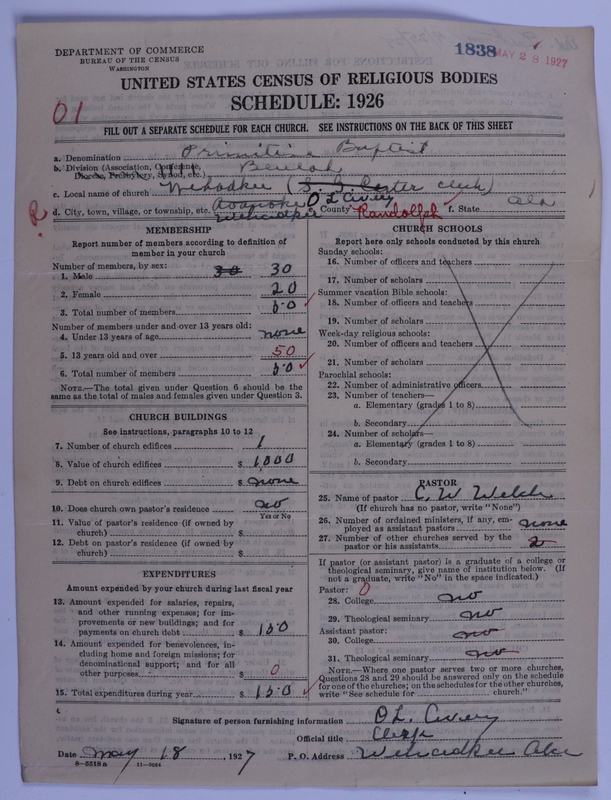 DEPARTMENT OF COMMERCE
BUREAU OF THE CENSUS
WASHINGTON
1838
MAY 28 1927
UNITED STATES CENSUS OF RELIGIOUS BODIES
SCHEDULE: 1926
01
FILL OUT A SEPARATE SCHEDULE FOR EACH CHURCH. SEE INSTRUCTIONS ON THE BACK OF THIS SHEET
a. Denomination Primitive Baptist
b. Division (Association, Conference, Diocese, Presbytery, Synod, etc.) Beulah
c. Local name of church Wehadkee
d. City, town, village, or township, etc. Roanoke e. County Randolph f. State Ala
MEMBERSHIP
Report number of members according to definition of
member in your church
Number of members, by sex:
1. Male 30 30
2. Female 20
3. Total number of members 50
Number of members under and over 13 years old:
4. Under 13 years of age none
5. 13 years old and over 50
6. Total number of members 50
NOTE.—The total given under Question 6 should be the
same as the total of males and females given under Question 3.
CHURCH BUILDINGS
See instructions, paragraphs 10 to 12
7. Number of church edifices 1
8. Value of church edifices $ 1,000
9. Debt on church edifices $ none
10. Does church own pastor's residence no
Yes or No
11. Value of pastor's residence (if owned by
church) $
12. Debt on pastor's residence (if owned by
church) $
EXPENDITURES
Amount expended by your church during last fiscal year
13. Amount expended for salaries, repairs,
and other running expenses; for im-
provements or new buildings; and for
payments on church debt $ 150
14. Amount expended for benevolences, in-
cluding home and foreign missions; for
denominational support; and for all
other purposes $ 0
15. Total expenditures during year $ 150
CHURCH SCHOOLS
Report here only schools conducted by this church
Sunday schools:
16. Number of officers and teachers
17. Number of scholars
Summer vacation Bible schools:
18. Number of officers and teachers
19. Number of scholars
Week-day religious schools:
20. Number of officers and teachers
21. Number of scholars
Parochial schools:
22. Number of administrative officers
23. Number of teachers—
a. Elementary (grades 1 to 8)
b. Secondary
24. Number of scholars—
a. Elementary (grades 1 to 8)
b. Secondary
PASTOR
25. Name of pastor C. W. Welch
(If church has no pastor, write "None")
26. Number of ordained ministers, if any, em-
ployed as assistant pastors none
27. Number of other churches served by the
pastor or his assistants 2
If pastor (or assistant pastor) is a graduate of a college or
theological seminary, give name of institution below. (If
not a graduate, write "No" in the space indicated.)
Pastor: 0
28. College no
29. Theological seminary no
Assistant pastor:
30. College no
31. Theological seminary no
NOTE.—Where one pastor serves two or more churches,
Questions 28 and 29 should be answered only on the schedule
for one of the churches; on the schedules for the other churches,
write "See schedule for church."
Signature of person furnishing information O L. Avery
Official title Clerk
Date May 18, 1927 P. O. Address Wehadkee Ala
8—5518a 11—9064